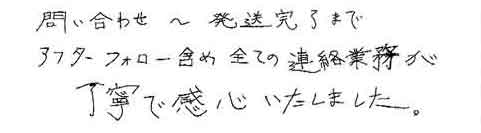 問い合わせ ～ 発送完了まで
アフターフォロー含め 全ての連絡業務が
丁寧で感心いたしました。